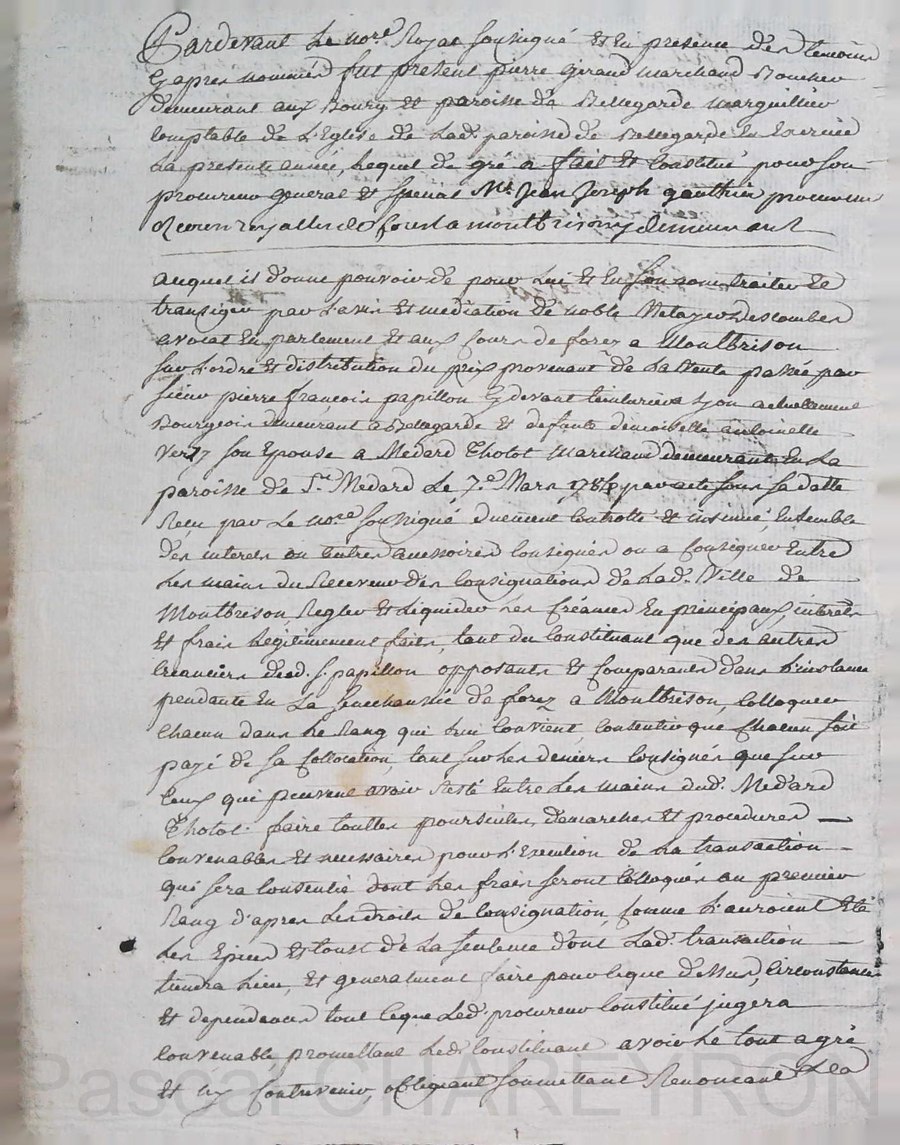 Pardevant Le nore Royal soussigné et en presence des temoins
cy apres nommés fut present pierre Giraud marchand Boucher
demeurant aux Bourg et paroisse de Bellegarde marguillier
comptable de L'Eglise de Lade paroisse de Bellegarde en Exercice
La presente année, Lequel de gré a fait et Constitué pour son
procureur general et special Me Jean Joseph gauthier procureur
ez cours royalles de forest a montbrison y demeurant
auquel il donne pouvoir de pour Lui et en son nom traiter et
transiger par L'avis et mediation de noble Metayer Descombes
avocat en parlement et aux Cours de forez a Montbrison
sur L'ordre et distribution du prix provenant de La Vente passée par
sieur pierre françois papillon cy devant a Lyon actuellement
Bourgeois demeurant a Bellegarde et defunte demoiselle antoinette
son Epouse a Medard Tholot marchand demeurant en La
paroisse de St Medard Le 7e Mars 1784 par acte sous sa datte
Reçu par Le nore soussigné duement Controllé et insinué, Ensemble
des interets ou autres accessoires Consignés ou a Consigner Entre
Les mains du Receveur des Consignations de Lade Ville de
Montbrison, Regler et Liquider Les Créances En principaux, interets
et frais Legitimement faits, tant du Constituant que des autres
Creanciers dud. s. papillon opposants et Comparants dans L'instance
pendante en La Senechaussée de forez a Montbrison, Colloquer
Chacun dans Le Rang qui Lui Convient, Consentir que Chacun soit
payé de sa Collocation, tant sur Les deniers Consignés que sur
Ceux qui peuvent avoir Resté Entre Les mains dud. Medard
Tholot. faire touttes poursuites, demarches et procedures
Convenables et necessaires pour L'Execution de La transaction
qui sera Consentie dont Les frais seront Colloqués au premier
Rang d'apres Les droits de Consignation, Comme L'auroient Eté
Les Epices et Coust de La sentence dont Lade transaction
tiendra Lieu, et generalment faire pour ce que dessus, Circonstances
et dependances tout ce que Led. procureur Constitué jugera
Convenable promettant Led. Constituant avoir Le tout a gré
et n'y Contrevenir, obligeant soumettant Renonceant
Pascal CHAREYRON